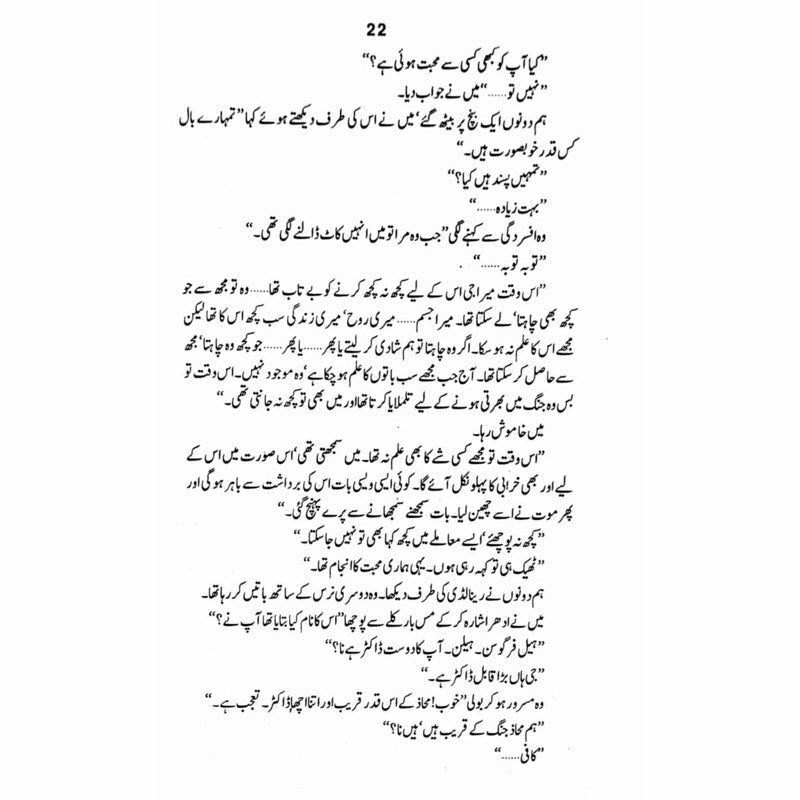 22
”کیا آپ کو کبھی کسی سے محبت ہوئی ہے؟“
”نہیں تو......“ میں نے جواب دیا۔
ہم دونوں ایک بنچ پر بیٹھ گئے‘ میں نے اس کی طرف دیکھتے ہوئے کہا ”تمہارے بال
کس قدر خوبصورت ہیں۔“
”تمہیں پسند ہیں کیا؟“
”بہت زیادہ......“
وہ افسردگی سے کہنے لگی ”جب وہ مرا تو میں انہیں کاٹ ڈالنے لگی تھی۔“
”توبہ توبہ......“
”اس وقت میرا جی اس کے لیے کچھ نہ کچھ کرنے کو بے تاب تھا...... وہ تو مجھ سے جو
کچھ بھی چاہتا‘ لے سکتا تھا۔ میرا جسم...... میری روح‘ میری زندگی سب کچھ اس کا تھا لیکن
مجھے اس کا علم نہ ہو سکا۔ اگر وہ چاہتا تو ہم شادی کر لیتے یا پھر...... یا پھر...... جو کچھ وہ چاہتا‘ مجھ
سے حاصل کر سکتا تھا۔ آج جب مجھے سب باتوں کا علم ہو چکا ہے‘ وہ موجود نہیں۔ اس وقت تو
بس وہ جنگ میں بھرتی ہونے کے لیے تلملایا کرتا تھا اور میں بھی تو کچھ نہ جانتی تھی۔“
میں خاموش رہا۔
”اس وقت تو مجھے کسی شے کا بھی علم نہ تھا۔ میں سمجھتی تھی‘ اس صورت میں اس کے
لیے اور بھی خرابی کا پہلو نکل آئے گا۔ کوئی ایسی ویسی بات اس کی برداشت سے باہر ہو گی اور
پھر موت نے اسے چھین لیا۔ بات سمجھنے سمجھانے سے پرے پہنچ گئی۔“
”کچھ نہ پوچھئے‘ ایسے معاملے میں کچھ کہا بھی تو نہیں جا سکتا۔“
”ٹھیک ہی تو کہہ رہی ہوں۔ یہی ہماری محبت کا انجام تھا۔“
ہم دونوں نے رینالڈی کی طرف دیکھا۔ وہ دوسری نرس کے ساتھ باتیں کر رہا تھا۔
میں نے ادھر اشارہ کر کے مس بارکلے سے پوچھا ”اس کا نام کیا بتایا تھا آپ نے؟“
”ہیل فرگوسن۔ ہیلن۔ آپ کا دوست ڈاکٹر ہے نا؟“
”جی ہاں بڑا قابل ڈاکٹر ہے۔“
وہ مسرور ہو کر بولی ”خوب! محاذ کے اس قدر قریب اور اتنا اچھا ڈاکٹر۔ تعجب ہے۔“
”ہم محاذ جنگ کے قریب ہیں‘ ہیں نا؟“
”کافی......“